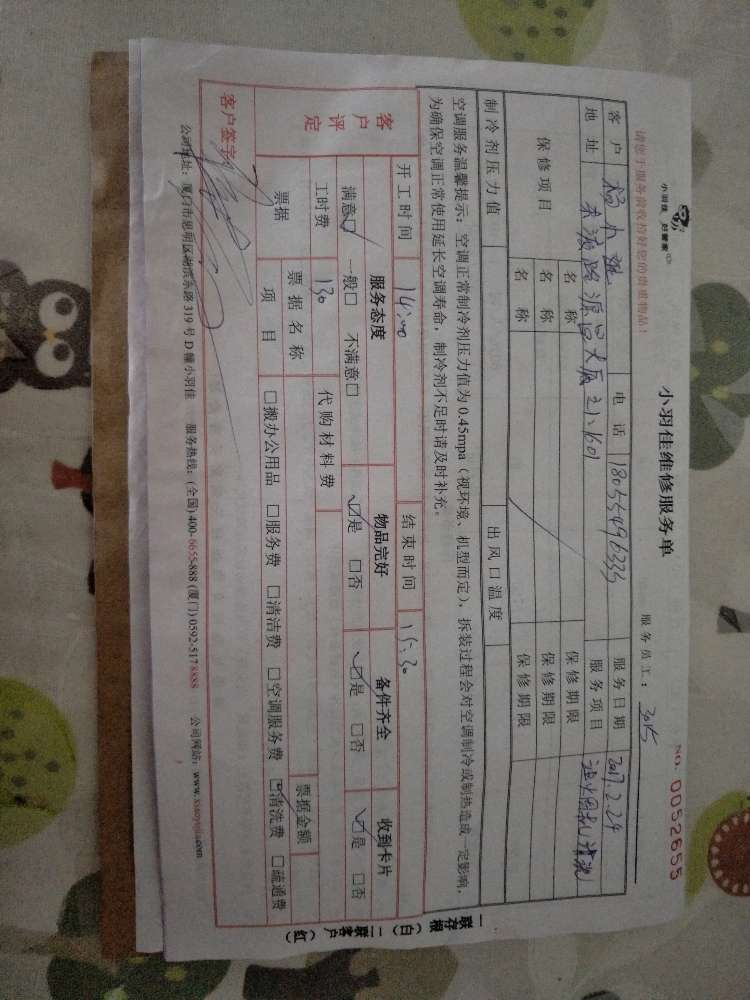 小羽佳 好管家
请您于服务前收拾好您的贵重物品!
小羽佳维修服务单
服务员工: 3015
NO. 0052655
客户 杨小姐 电话 18055496333 服务日期 2017.2.24
地址 禾祥路源昌大厦 21-1601 服务项目 油烟机清洗
保修项目 名称 保修期限
名称 保修期限
名称 保修期限
制冷剂压力值 出风口温度
空调服务温馨提示:空调正常制冷剂压力值为 0.45mpa(视环境、机型而定),拆装过程会对空调制冷或制热造成一定影响,
为确保空调正常使用延长空调寿命,制冷剂不足时请及时补充。
开工时间 14:00 结束时间 15:30
客户评定 服务态度 物品完好 备件齐全 收到卡片
满意☑ 一般□ 不满意□ ☑是 □否 ☑是 □否 ☑是 □否
工时费 130 代购材料费
票据 票据名称 票据金额
项目 □搬办公用品 □服务费 □清洁费 □空调服务费 ☑清洗费 □疏通费
客户签字:
公司地址:厦门市思明区湖滨东路 319 号 D 幢小羽佳 服务热线:(全国)400-6655-888 (厦门)0592-5178888 公司网站:www.xiaoyujia.com
一联存根(白)二联客户(红)